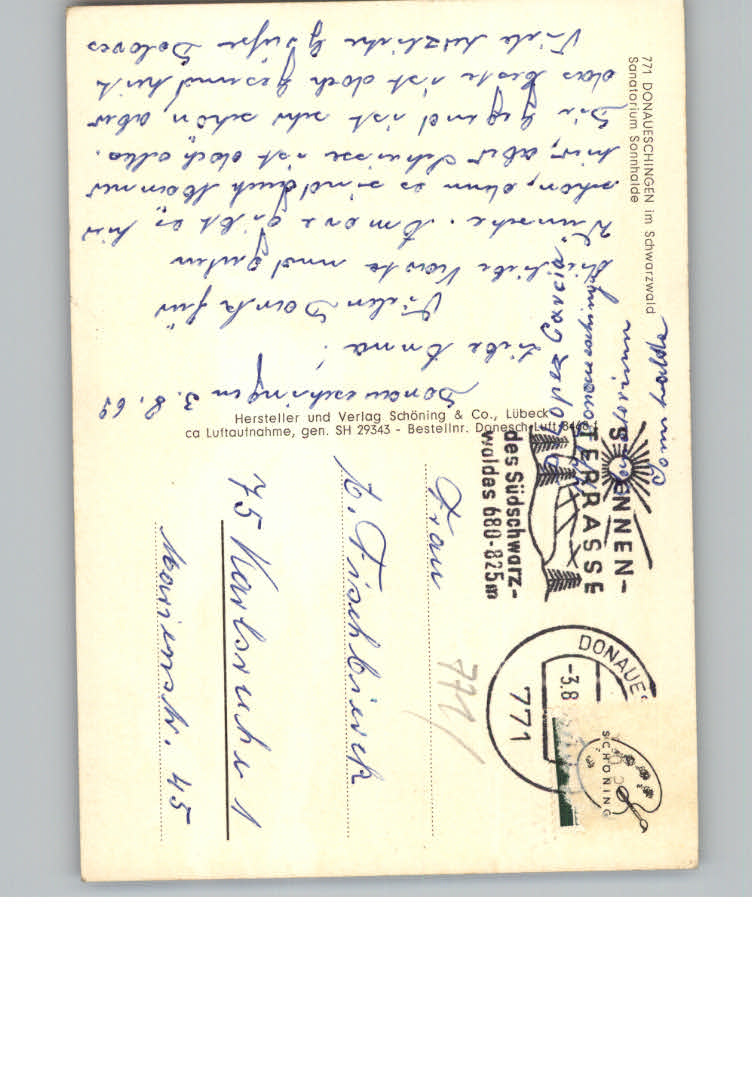 771 DONAUESCHINGEN im Schwarzwald
Sanatorium Sonnhalde
Donaueschingen 3.8.69
Liebe Anna!
Vielen Dank für
die liebe Karte und guten
Wünsche. Amore gibt es hier
schön, denn es sind auch Männer
hier, aber Scheisse ist doch alles.
Die Gegend ist sehr schön, aber
das beste ist doch Gesundheit
Viele herzliche Grüße Dolores
Lopez Garcia
Hersteller und Verlag Schöning & Co., Lübeck
ca Luftaufnahme, gen. SH 29343 - Bestellnr. Donesch Luft 8468
SONNEN-
TERRASSE
des Südschwarz-
waldes 680-825m
DONAUES
-3.8
771
SCHÖNING
771/
Frau
A. Fischbierek
75 Karlsruhe 1
Marienstr. 45